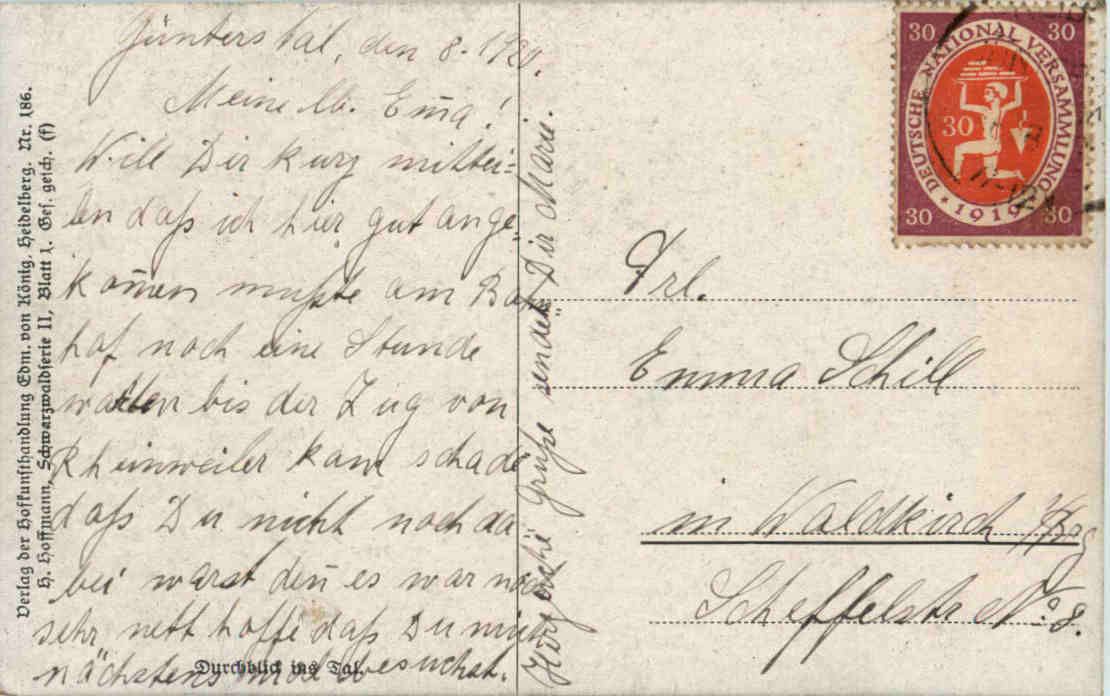 Günterstal, den 8. 1920.
Meine lb. Em̄a!
Will Dir kurz mittei-
len daß ich hier gut ange-
kom̄en mußte am Bahn
hof noch eine Stunde
warten bis der Zug von
Rheinweiler kam schade
daß Du nicht noch da
bei warst den̄ es war noch
sehr nett hoffe daß Du mich
nächstens mal besuchst.
Herzliche Grüße sendet Dir Marie.
Frl.
Emma Schill
in Waldkirch i/Brg
Scheffelstr No. 8.
Verlag der Hofkunsthandlung Edm. von König, Heidelberg. Nr. 186.
H. Hoffmann, Schwarzwaldserie II, Blatt 1. Ges. gesch. (f)
Durchblick ins Tal.
30 30
DEUTSCHE NATIONAL VERSAMMLUNG
30
* 1919 *
30 30
11-12